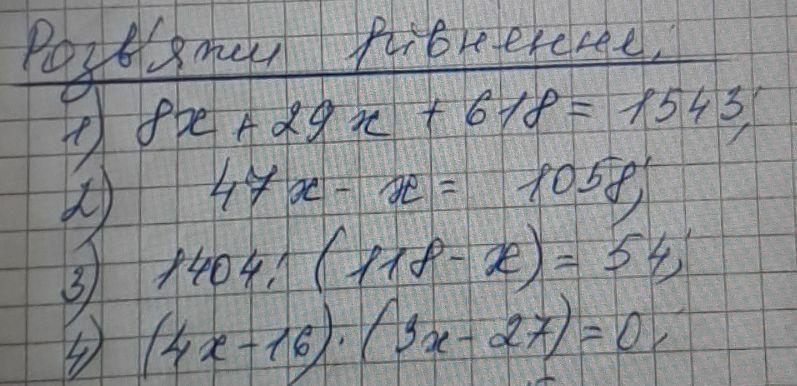 Розв'яжи рівнення;
1) 8x + 29x + 618 = 1543;
2) 47x - x = 1058;
3) 1404 : (118 - x) = 54;
4) (4x - 16) · (3x - 27) = 0;